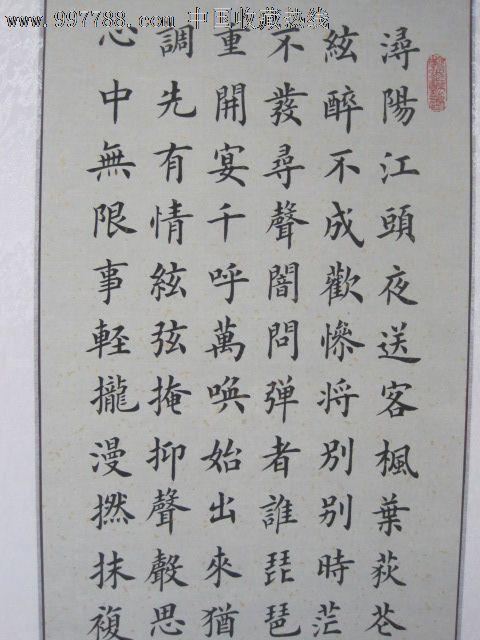 www.997788.com 中国收藏热线
潯陽江頭夜送客楓葉荻
絃醉不成歡慘将別別時茫
不發尋聲闇問弹者誰琵琶
重開宴千呼萬唤始出來猶
調先有情絃弦掩抑聲聲思
心中無限事軽攏漫撚抹複